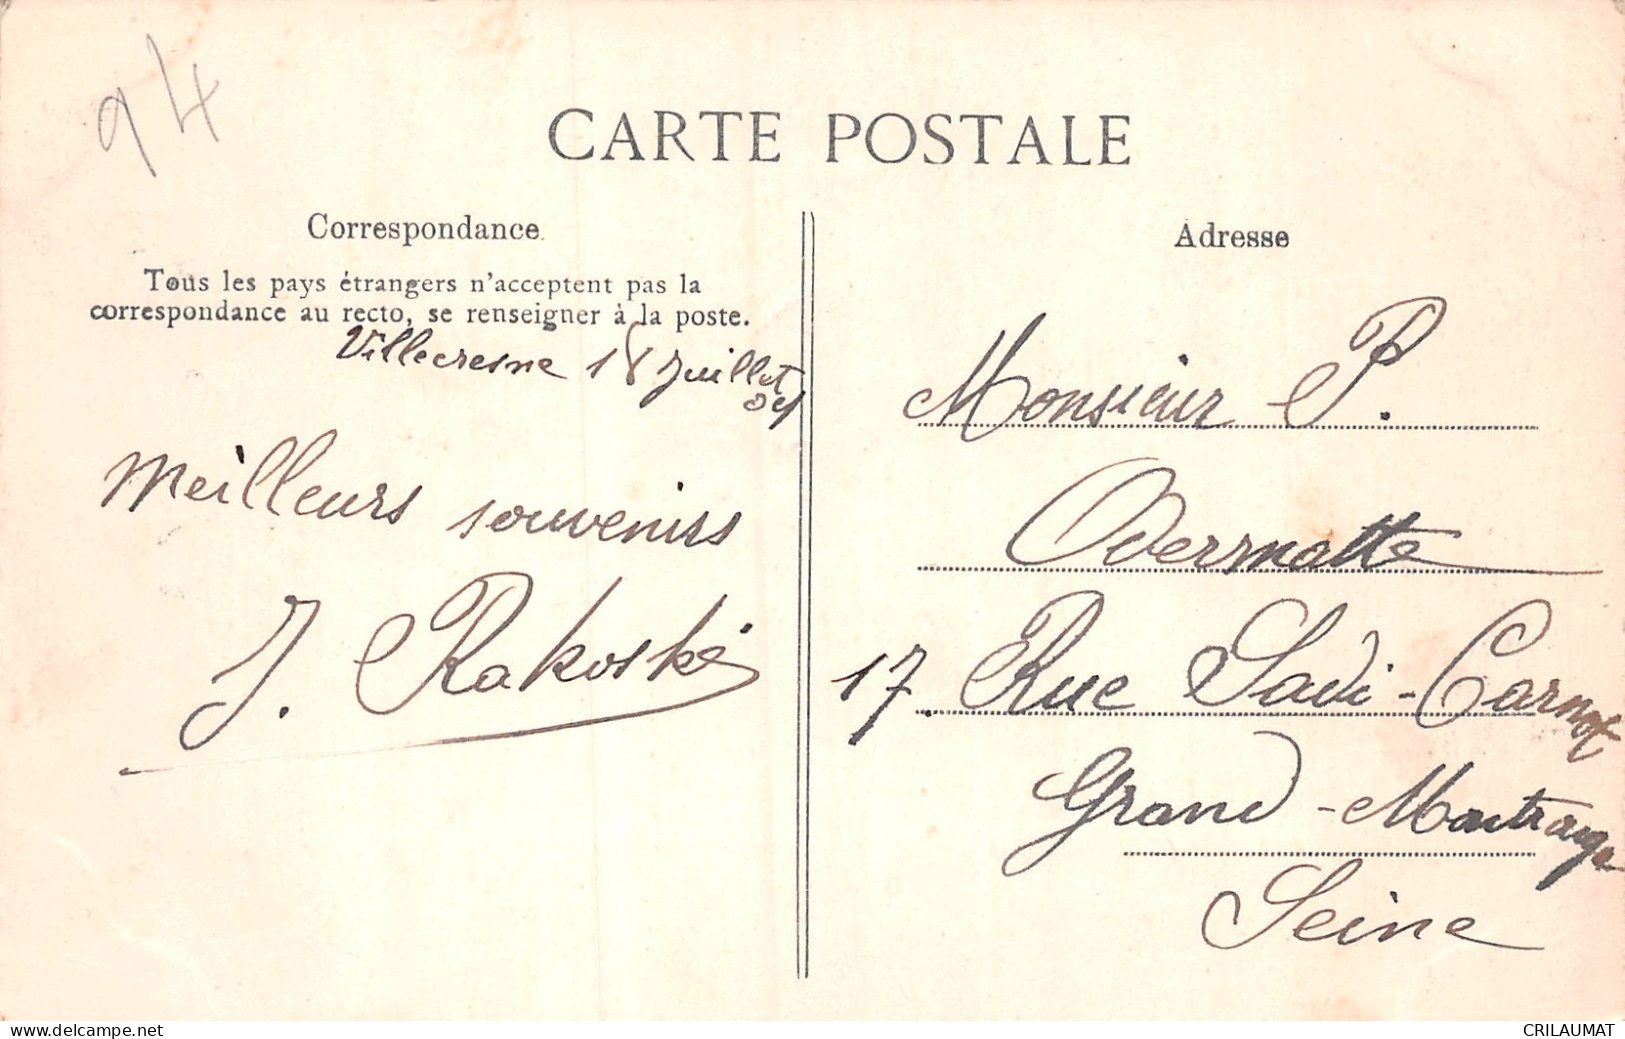 94
CARTE POSTALE
Correspondance.
Tous les pays étrangers n'acceptent pas la
correspondance au recto, se renseigner à la poste.
Villecresne 18 Juillet
Meilleurs souvenirs
J. Rakoské
Adresse
Monsieur P.
Overmatte
17. Rue Sadi-Carnot
Grand-Montrouge
Seine
www.delcampe.net
CRILAUMAT